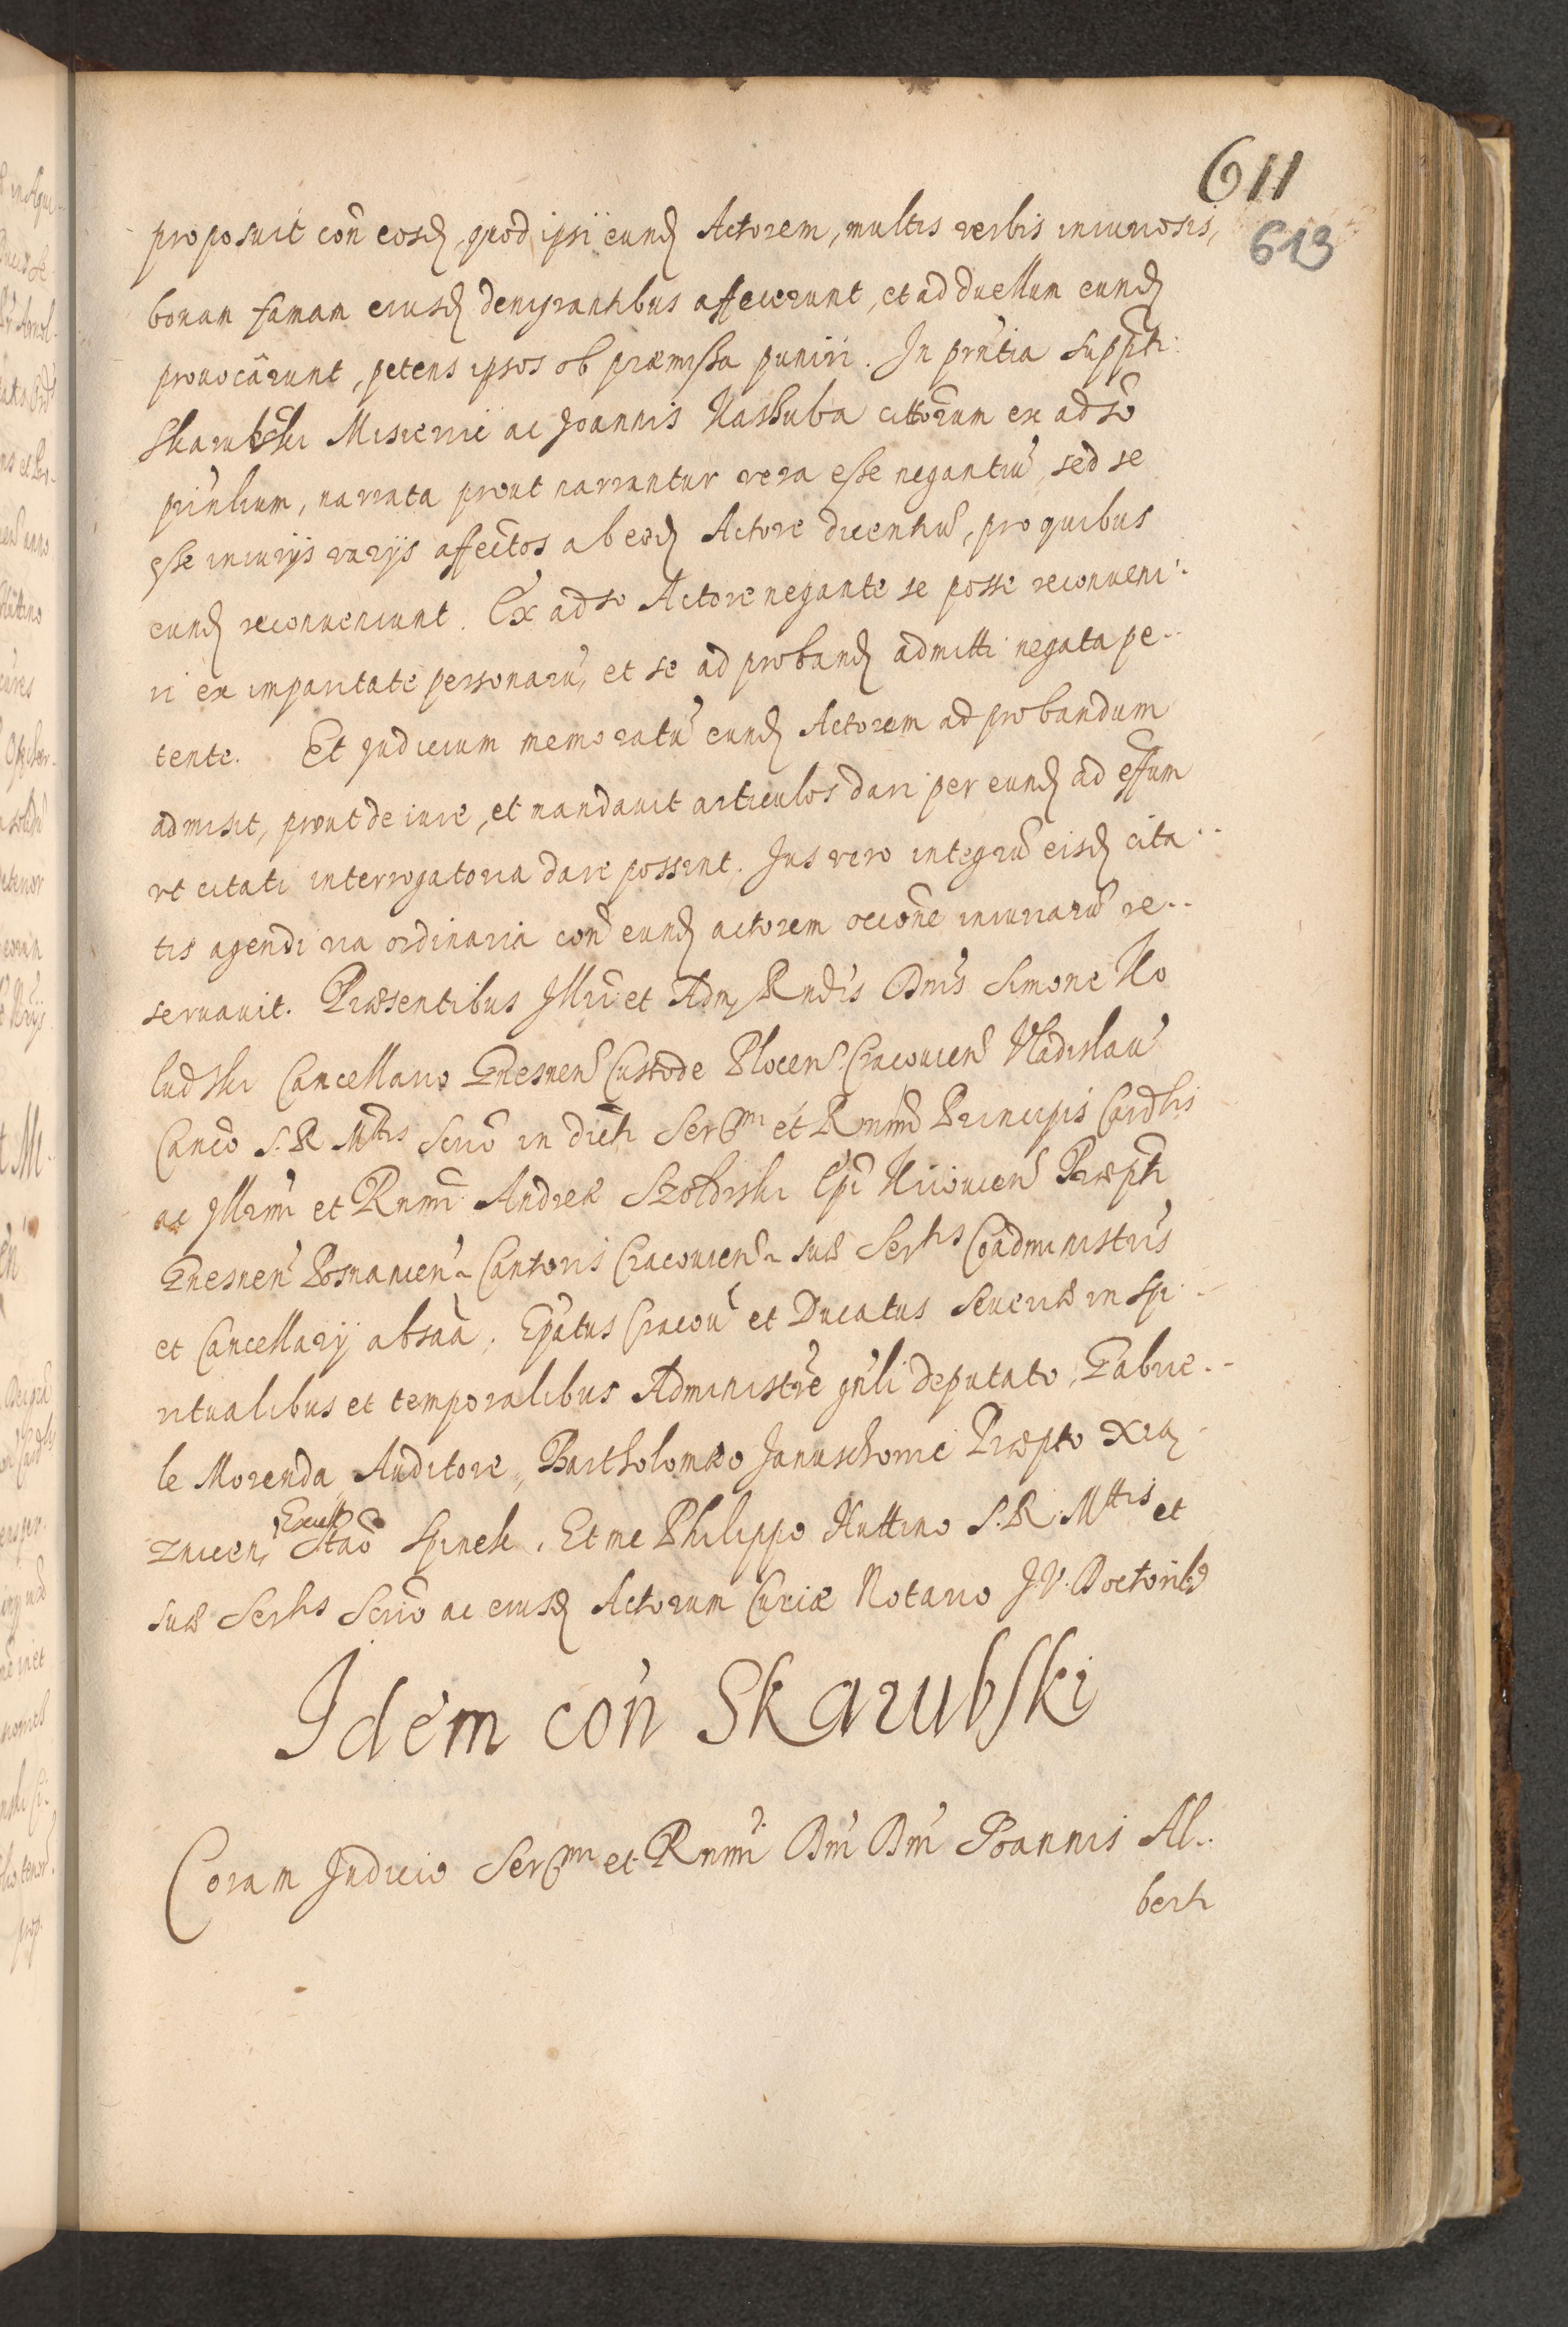 611
613
proposuit coñ eosd, quod ipsi eund Actorem, multis verbis iniuriosis,
bonam famam eiusd denigrantibus affecerunt, et ad duellum eund
prouocârunt, petens ipsos ob præmissa puniri. In pñtia Suppñti
Skarubski Misierni ac Joannis Kashuba cittorum ex adso
prinlium, narrata prout narrantur vera esse negantiũ, sed se
esse iniurijs varijs affectos ab eod Actore dicentiũ, pro quibus
eund reconueniunt. Ex adso Actore negante se posse reconueni-
ri ex imparitate personarũ, et se ad proband admitti negata pe-
tente. Et Judicium memoratũ eund Actorem ad probandum
admisit, prout de iure, et mandauit articulos dari per eund ad effum
vt citati interrogatoria dare possint. Jus vero integrũ eisd cita-
tis agendi via ordinaria coñ eund actorem occõne iniuriarũ re-
seruauit. Præsentibus Illri et Adm Rndis Dnis Simone Ko
ludski Cancellario Gnesnen Custode Plocen Cracouien Vladislau
Canco S. R Mttis Scrio in dicti Sermi et Rnmi Principis Cardlis
ac Illrmi et Rnmi Andreæ Szołdrski Epi Kiiouien Præpti
Gnesnen Posnanien Cantoris Cracouien suæ Sertis Coadministris
et Cancellarij absa, Epatus Cracou et Ducatus Seueriæ in spi-
ritualibus et temporalibus Administre gñli deputato, Gabrie-
le Morenda Auditore, Bartholomæo Januschowic Præpto Xią
znicen, Stao Spinek. Et me Philippo Huttino S. R. Mttis et
suæ Sertis Scrio ac eiusd Actorum Curiæ Notario J. V. Doctorib9
Idem coñ Skarubski
Coram Judicio Sermi et Rnmi Dni Dni Joannis Al-
berti